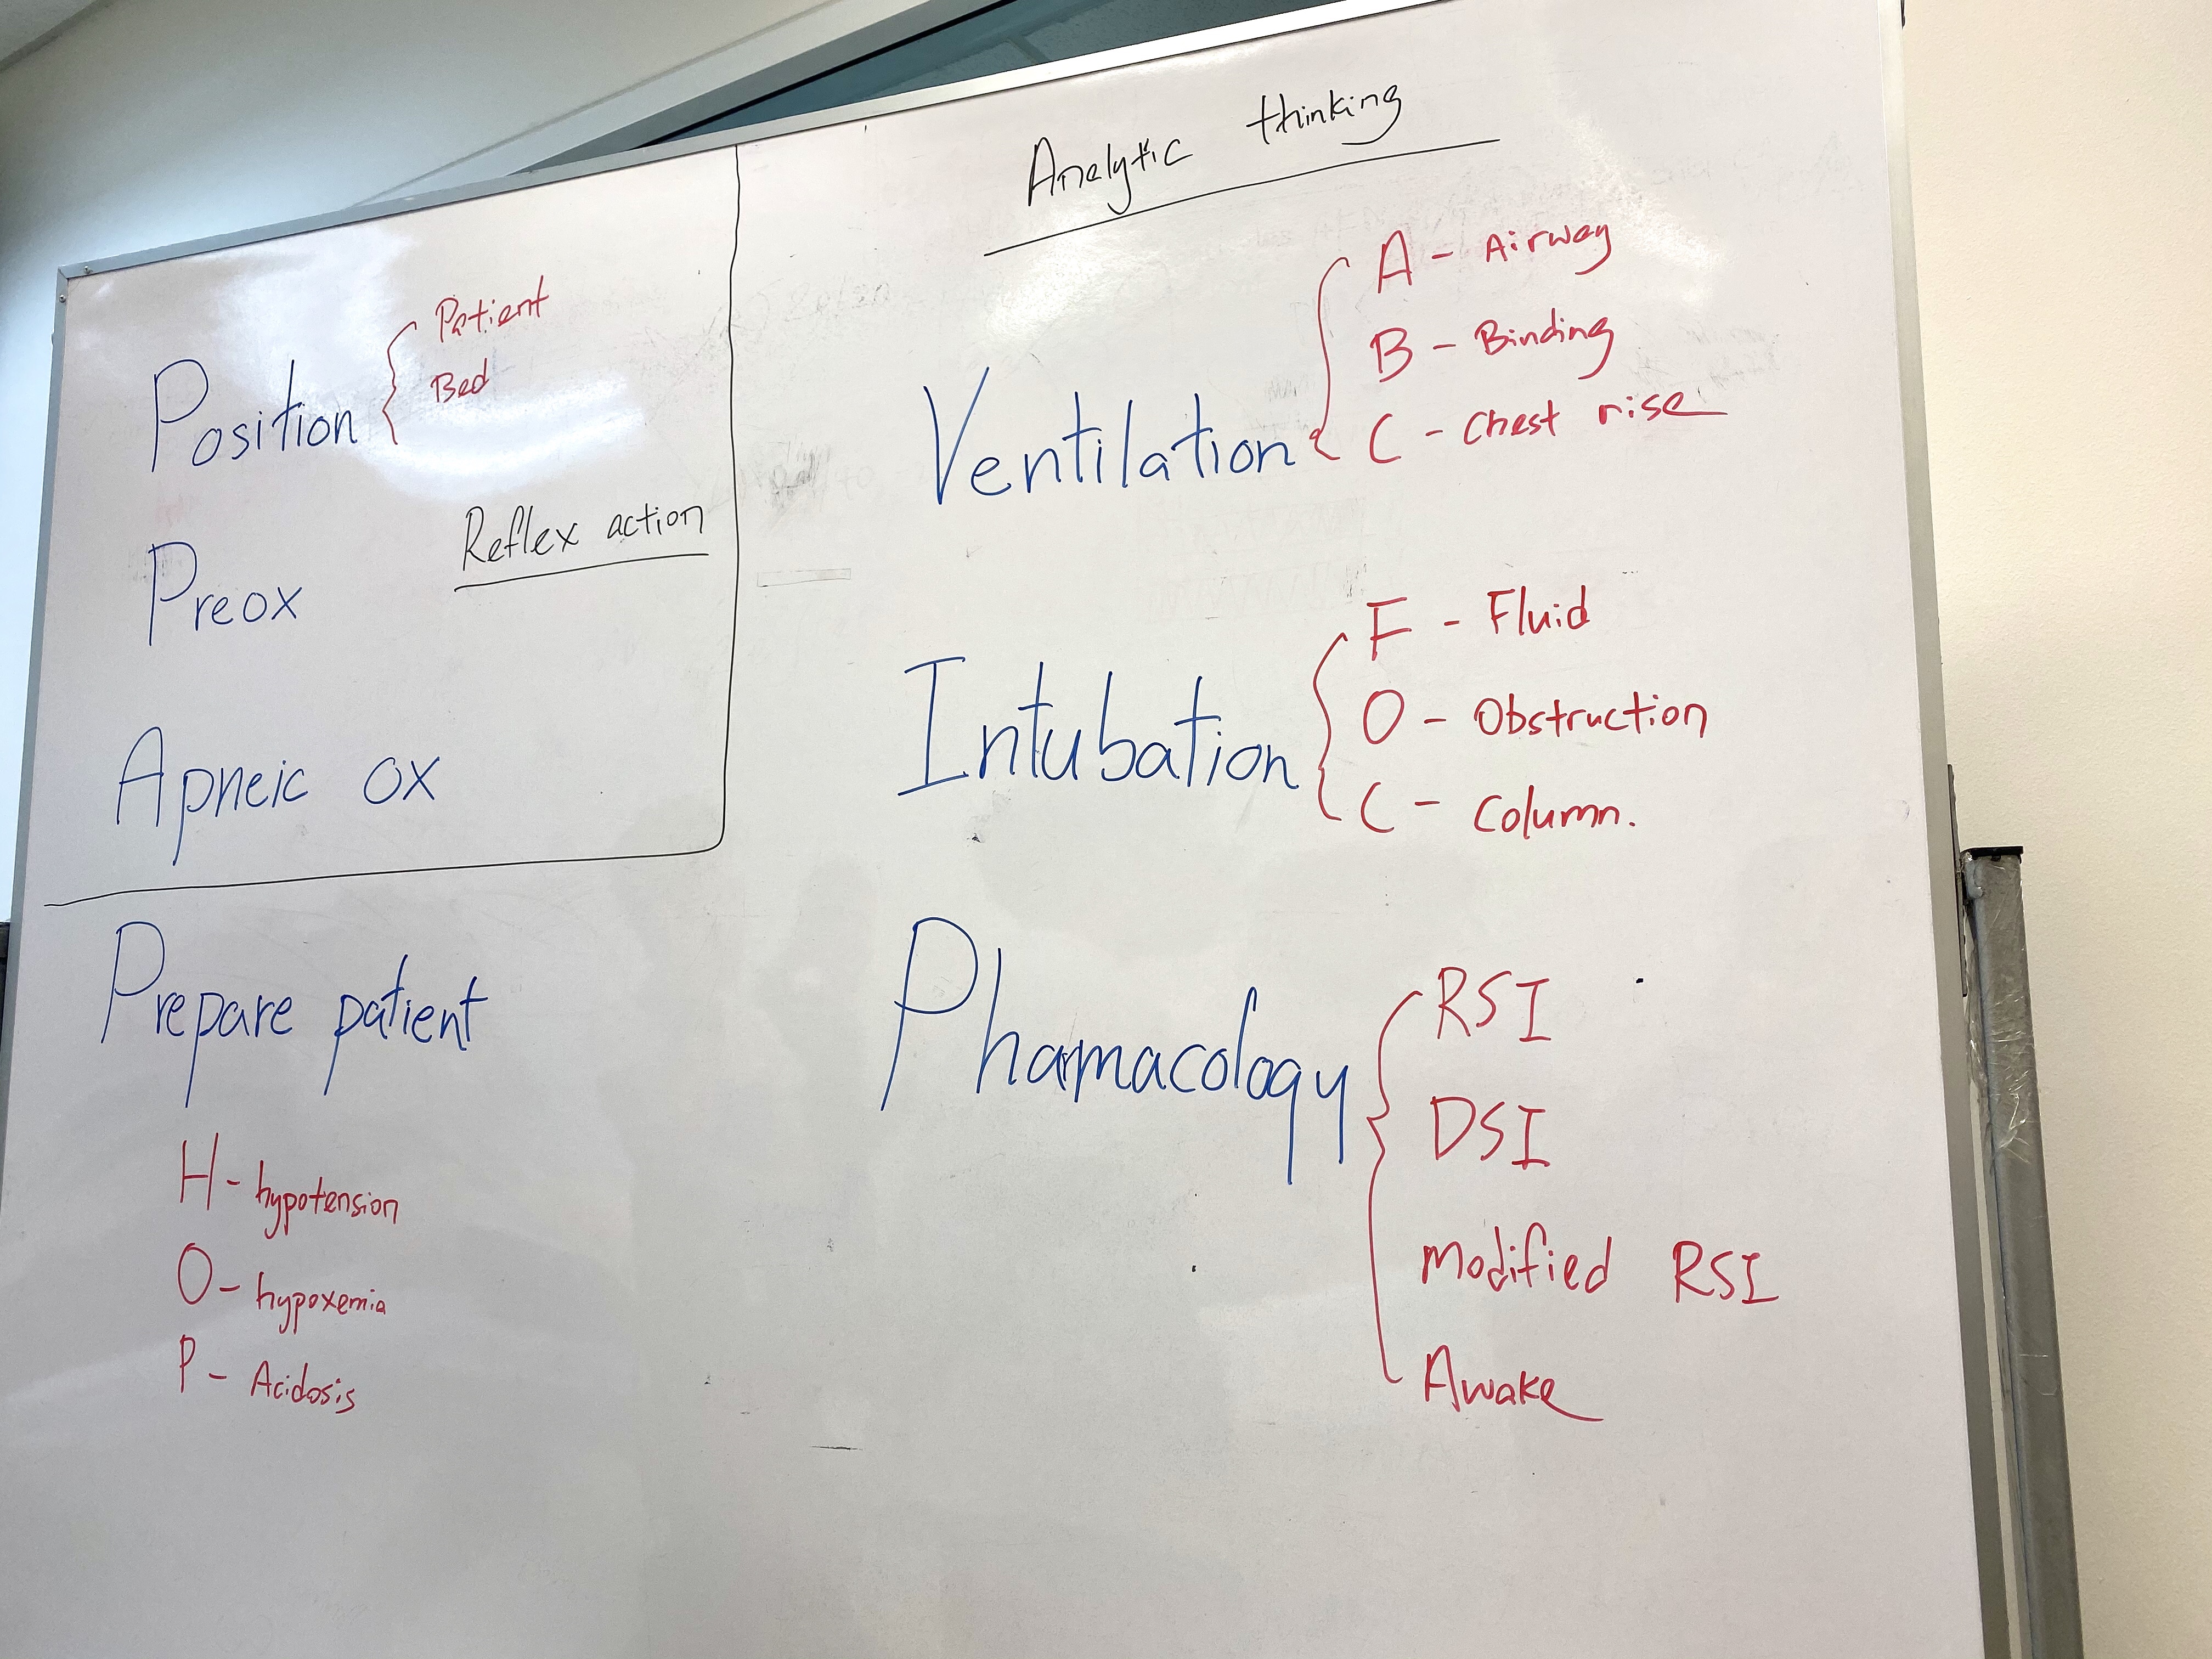 Position { Patient
Bed
Reflex action
Preox
Apneic ox
Prepare patient
H - hypotension
O - hypoxemia
P - Acidosis
Analytic thinking
Ventilation { A - Airway
B - Binding
C - Chest rise
Intubation { F - Fluid
O - Obstruction
C - Column.
Phamacology { RSI
DSI
Modified RSI
Awake